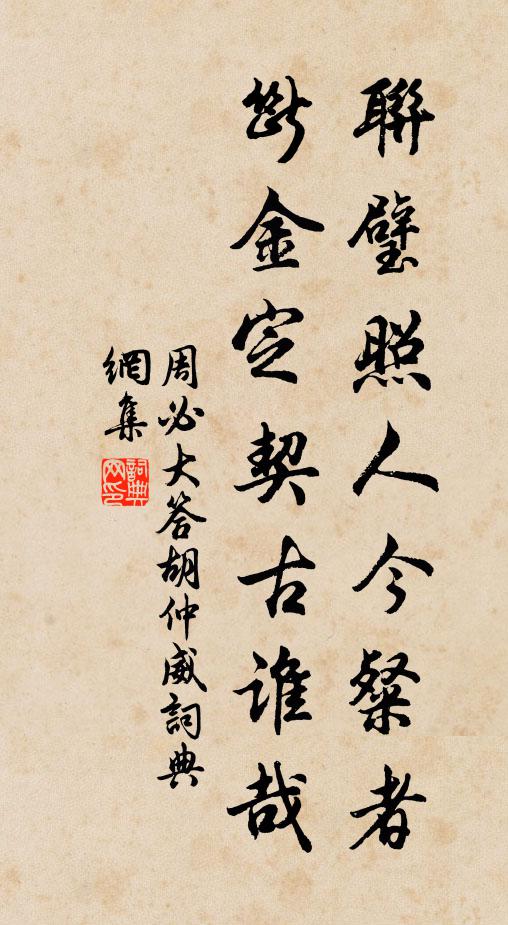 聯璧照人今粲者
斷金定契古誰哉
周必大答胡仲威詞典
網集
詞典网印